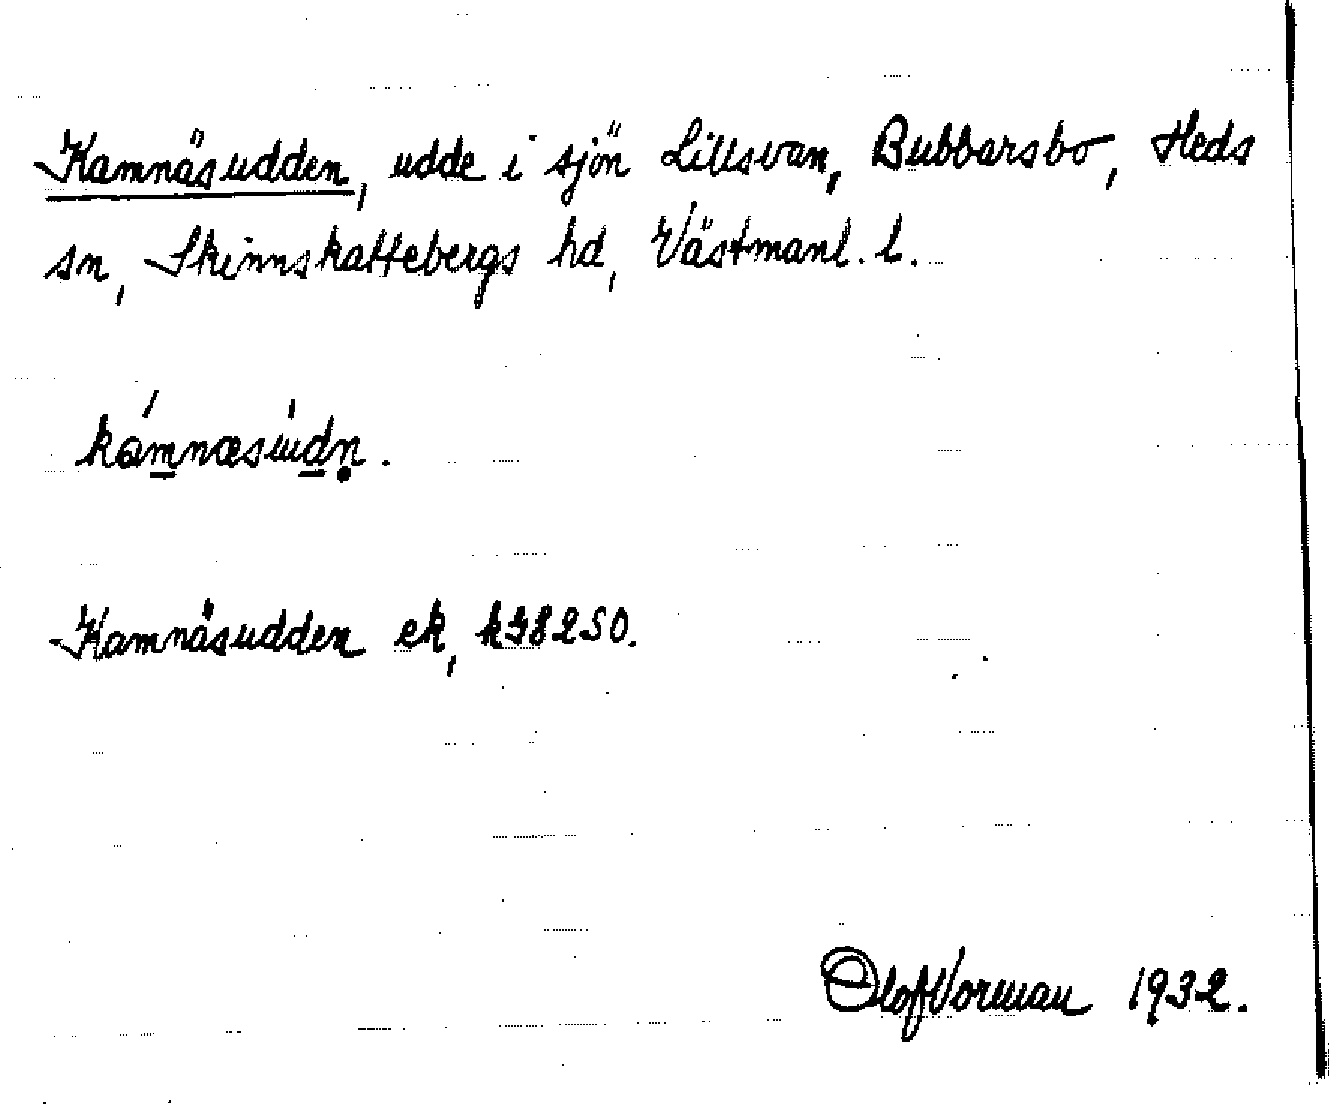 Kamnäsudden, udde i sjön Lillsvan, Bubbarsbo, Heds
sn, Skinnskattebergs hd, Västmanl. l.
kamnæsudn.
Kamnäsudden ek,
Olof Vorman 1932.